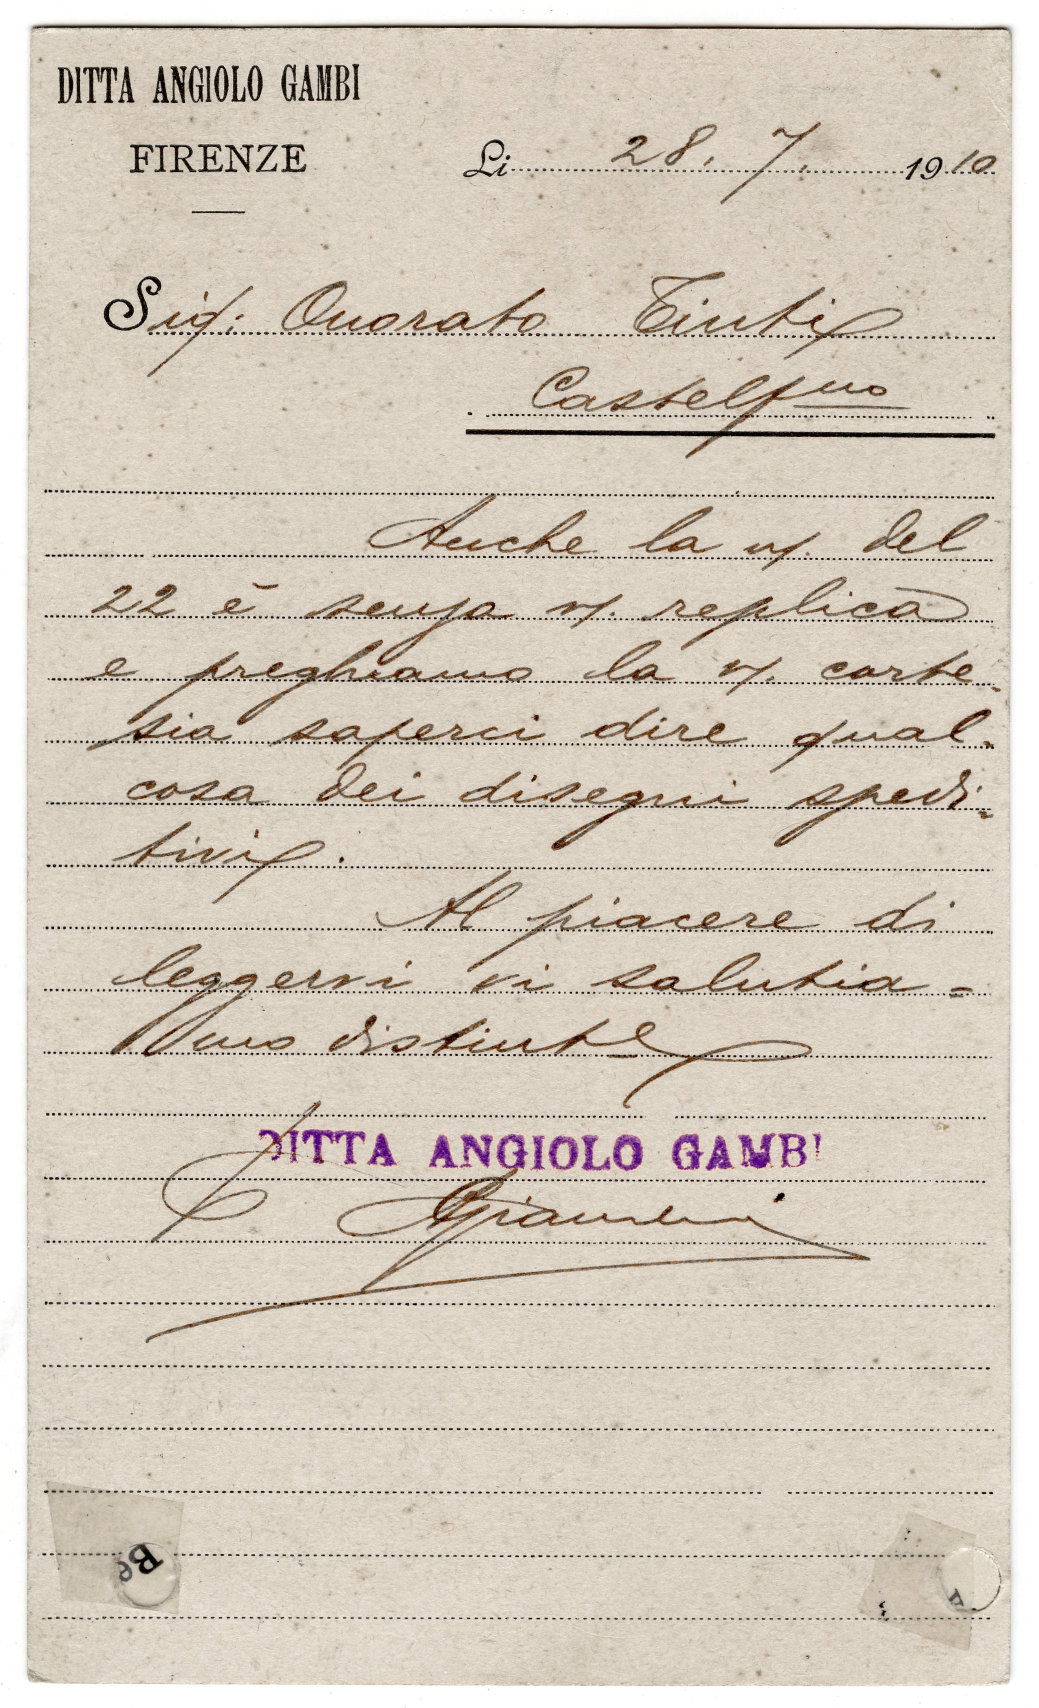 DITTA ANGIOLO GAMBI
FIRENZE
Li 28. 7. 1910
Sig. Onorato Tinti
Castelf.no
Anche la n/. del
22 è senza v/. replica
e preghiamo la v/. corte-
sia saperci dire qual-
cosa dei disegni spedi-
tivi.
Al piacere di
leggervi vi salutia-
mo distinte
DITTA ANGIOLO GAMBI
Be